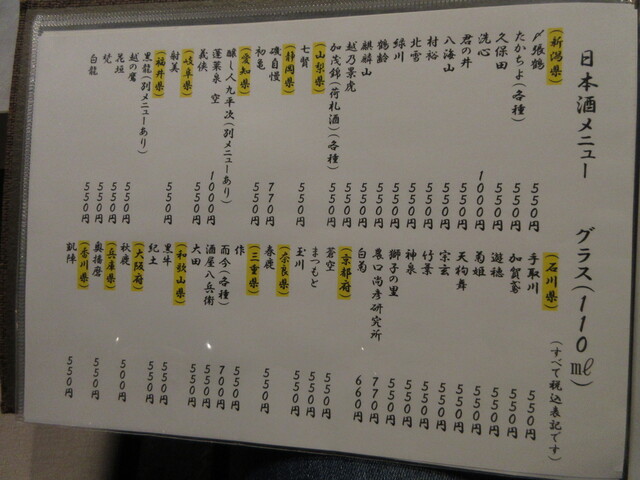 日本酒メニュー グラス(110㎖)
(すべて税込表記です)
(新潟県)
〆張鶴 550円
たかちよ(各種) 550円
久保田 550円
洗心 1000円
君の井 550円
八海山 550円
村裕 550円
北雪 550円
緑川 550円
鶴齢 550円
麒麟山 550円
越乃景虎 550円
加茂錦(荷札酒)(各種) 550円
(山梨県)
七賢 550円
(静岡県)
磯自慢 770円
初亀 550円
(愛知県)
醸し人九平次(別メニューあり)
蓬莱泉 空 1000円
義侠 550円
(岐阜県)
射美 550円
(福井県)
黒龍(別メニューあり)
越の鷹 550円
花垣 550円
梵 550円
白龍 550円
(石川県)
手取川 550円
加賀鳶 550円
遊穂 550円
菊姫 550円
天狗舞 550円
宗玄 550円
竹葉 550円
神泉 550円
獅子の里 550円
農口尚彦研究所 770円
白菊 660円
(京都府)
蒼空 550円
まつもと 550円
玉川 550円
(奈良県)
春鹿 550円
(三重県)
作 550円
而今(各種) 700円
酒屋八兵衛 550円
550円
(和歌山県)
黒牛 550円
紀土 550円
(大阪府)
秋鹿 500円
(兵庫県)
奥播磨 550円
(香川県)
凱陣 550円